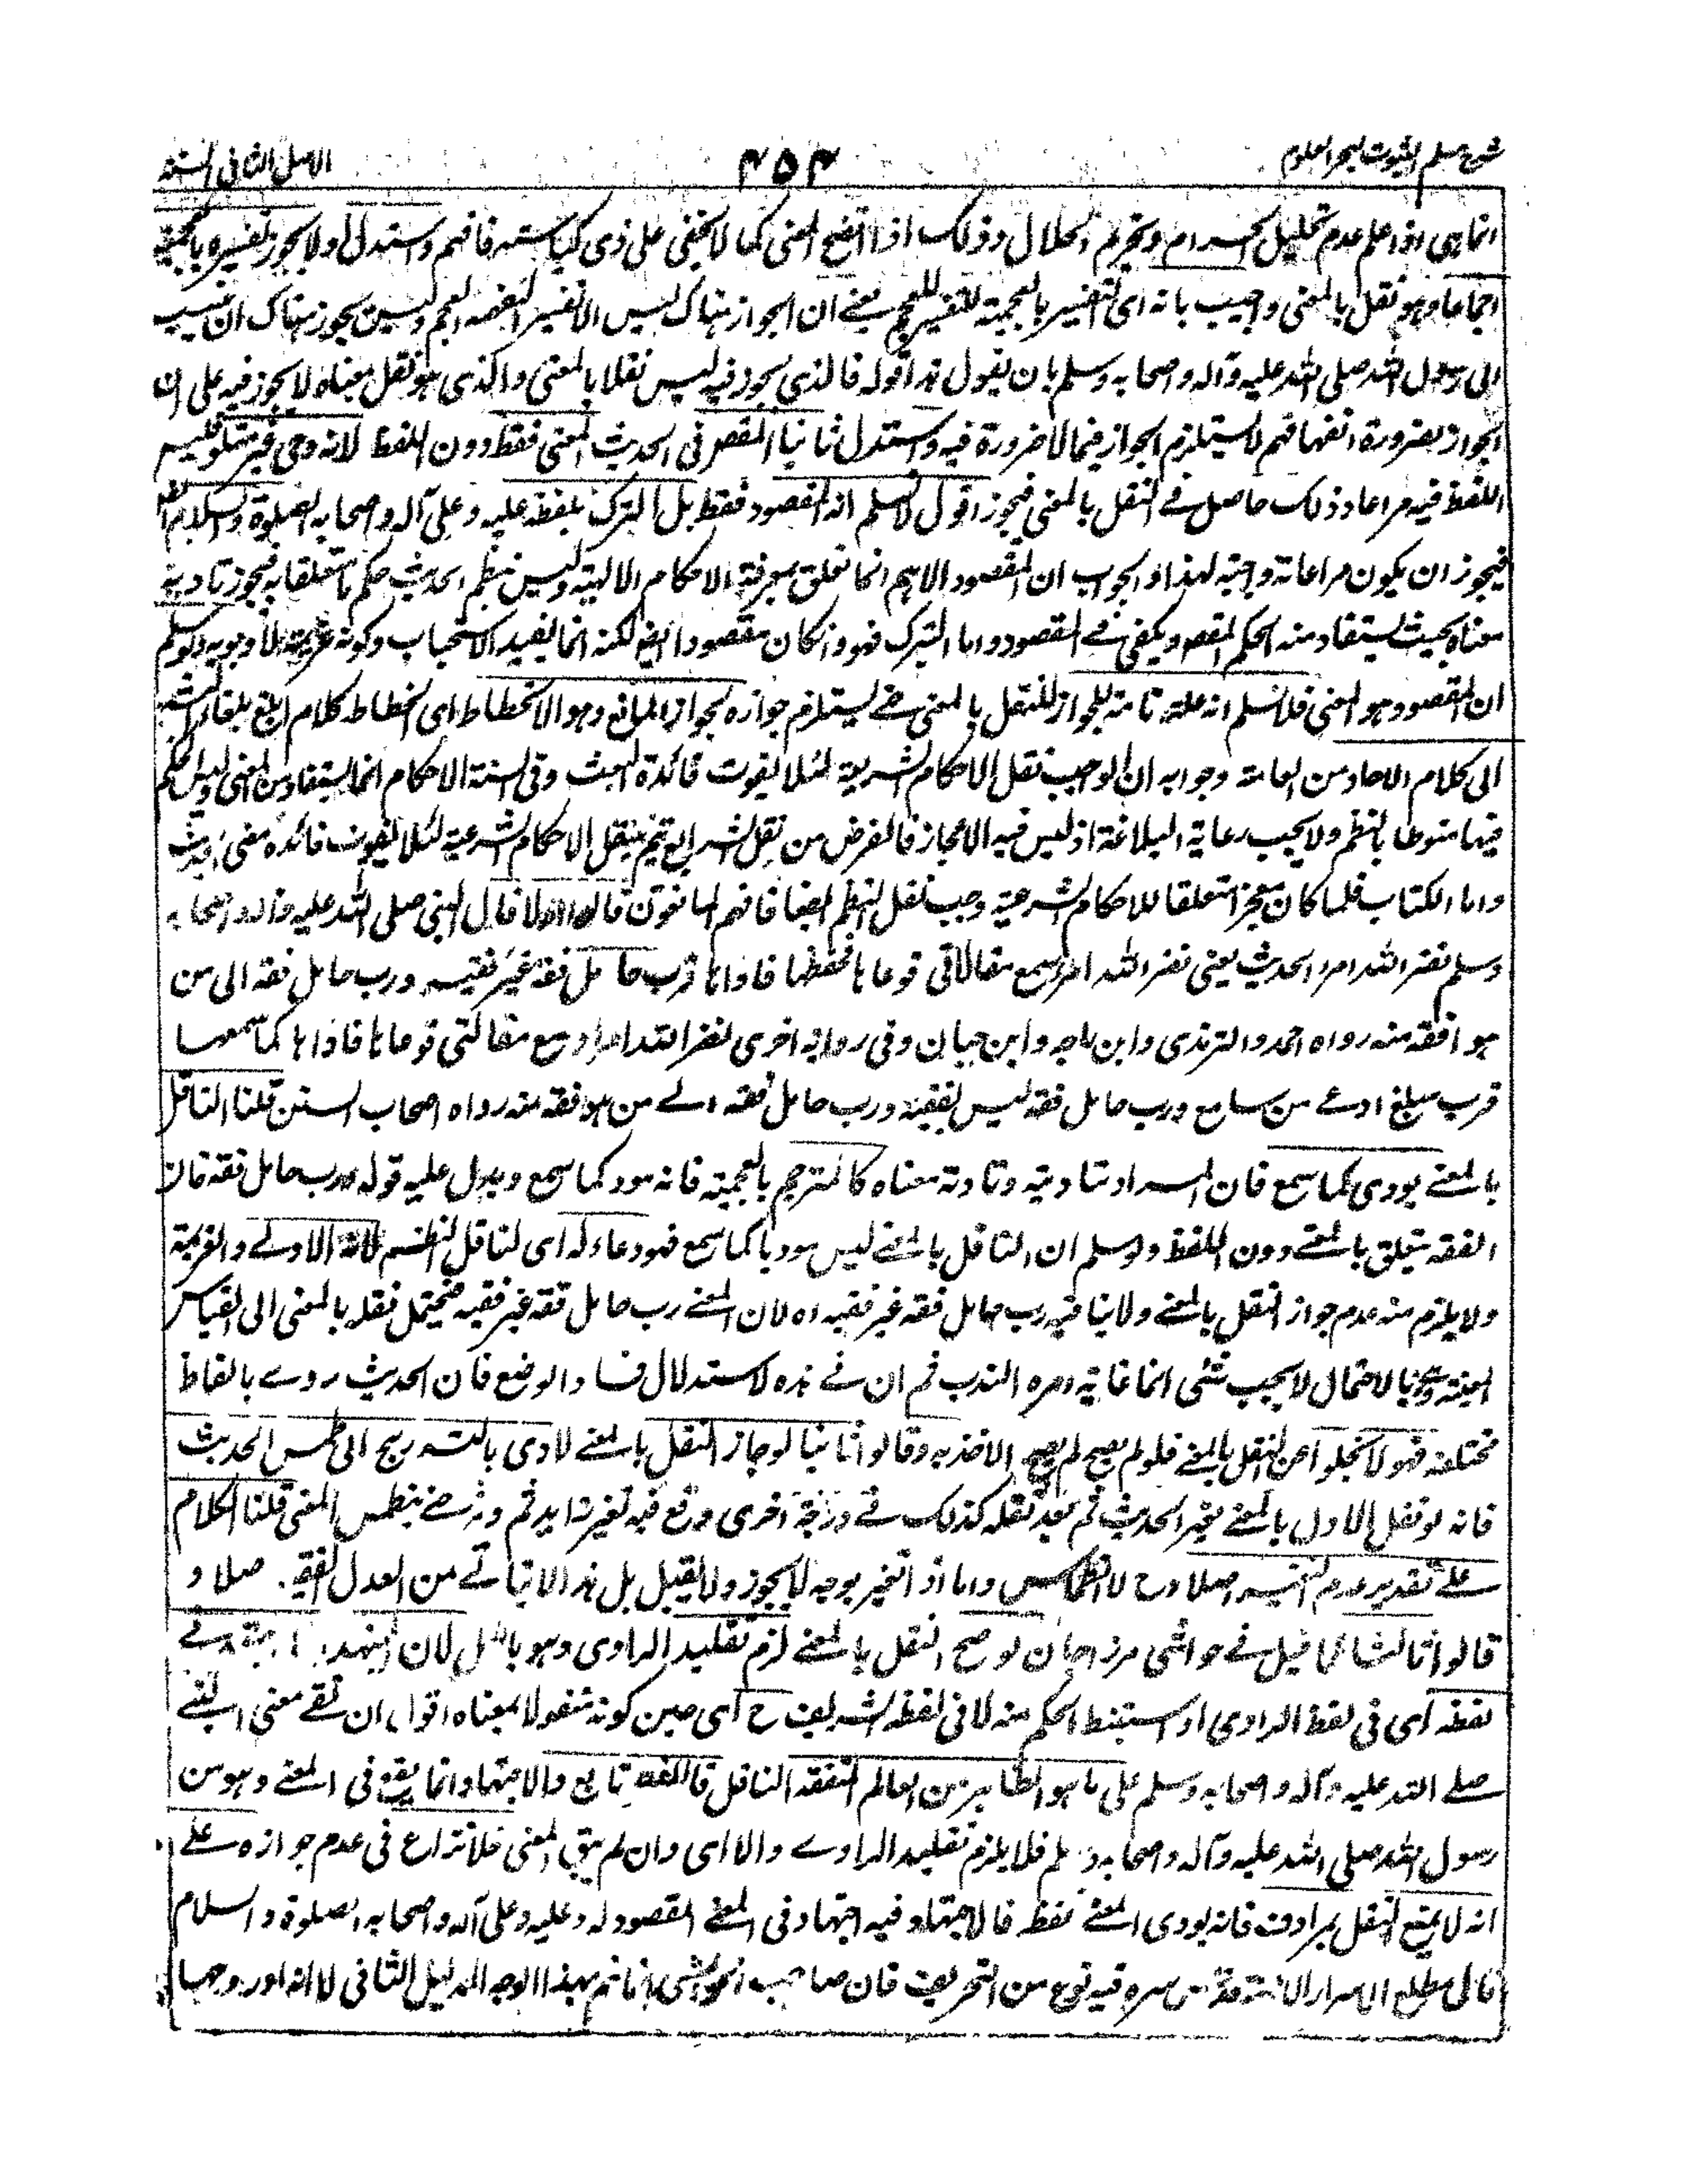 شرح مسلم الثبوت لبحر العلوم ۴۵۴ الاصل الثانی السنة
انما هی اذا علم عدم تحلیل الحرام وتحریم الحلال وذلک اذا اتضح المعنی کما لا یخفی علی ذی کیاسته فافهم واستدل اولا یجوز تفسیره بالعجمیة
اجماعا وهو نقل بالمعنی واجیب بانه ای التفسیر بالعجمیة للتفسیر للعجم یعنی ان الجواز هناک لیس الا تفسیر الیفهمه العجم ولیس یجوز هناک ان ینسب
الی رسول الله صلی الله علیه وآله واصحابه وسلم بان یقول هذا قوله فالذی یجوز فیه لیس نقلا بالمعنی والذی هو نقل معناه لا یجوز فیه علی ان
الجواز بضرورة افهامهم لا یستلزم الجواز فیما لا ضرورة فیه واستدل ثانیا المقصر فی الحدیث المعنی فقط دون اللفظ لانه وحی غیر متلو فلیس
اللفظ فیه مراعا وذلک حاصل فی النقل بالمعنی فیجوز اقول لا نسلم انه المقصود فقط بل التبرک بلفظه علیه وعلی آله واصحابه الصلوة والسلام ایضا
فیجوز ان یکون مراعاته واجبة لهذا والجواب ان المقصود الاهم انما تعلق بمعرفة الاحکام الالهیة ولیس بنظم الحدیث حکم ما متعلقا به فیجوز تادیة
معناه بحیث یستفاد منه الحکم المقصود ویکفی فی المقصود واما التبرک فهو وان کان مقصودا ایضا لکنه انما یفید الاستحباب وکونه عزیمة لا الوجوب ولو سلم
ان المقصود هو المعنی فلا نسلم انه علة تامة للجواز للنقل بالمعنی حتی یستلزم جوازه لجواز المانع وهو الانحطاط ای انحطاط کلام ابلغ بلغاء البشر
الی کلام الاحاد من العامة وجوابه ان الواجب نقل الاحکام الشریعة لئلا یفوت فائدة البعث وفی السنة الاحکام انما یستفاد من المعنی ولیس حکم
فیها منوطا بالنظم ولا یجب رعایة البلاغة اذ لیس فیه الاعجاز فالغرض من نقل الشرایع یتم بنقل الاحکام الشرعیة لئلا یفوت فائدة معنی البعث
واما الکتاب فلما کان معجزا متعلقا للاحکام الشرعیة وجب نقل النظم ایضا فافهم المانعون قالوا اولا قال النبی صلی الله علیه وآله واصحابه
وسلم نضر الله امرا الحدیث یعنی نضر الله امرا سمع مقالاتی فوعاها فحفظها فاداها فرب حامل فقه غیر فقیه ورب حامل فقه الی من
هو افقه منه رواه احمد والترمذی وابن ماجه وابن حبان وفی روایة اخری نضر الله امرا سمع مقالتی فوعاها فاداها کما سمعها
فرب مبلغ اوعی من سامع ورب حامل فقه لیس بفقیه ورب حامل فقه الی من هو افقه منه رواه اصحاب السنن قلنا الناقل
بالمعنی یودی کما سمع فان المراد تادیة معناه کالمترجم بالعجمیة فانه مود کما سمع ویدل علیه قوله فرب حامل فقه فان
الفقه یتعلق بالمعنی دون اللفظ ولو سلم ان الناقل بالمعنی لیس مودیا کما سمع فهو دعاء له ای لناقل النظم لانه الاولی والعزیمة
ولا یلزم منه عدم جواز النقل بالمعنی ولا ینافیه رب حامل فقه غیر فقیه اه لان المعنی رب حامل فقه غیر فقیه فیحتمل نقله بالمعنی الی القیاس
وبالاحتمال لا یجب شئی انما غایة امره الندب ثم ان فی هذه الاستدلال فساد الوضع فان الحدیث روی بالفاظ
مختلفة فهو لا یخلو عن النقل بالمعنی فلو لم یصح لم یصح الاخذ به وقالوا ثانیا لو جاز النقل بالمعنی لادی بالتدریج الی طمس الحدیث
فانه لو نقل الاول بالمعنی یغیر الحدیث ثم بعد نقله کذلک فی درجة اخری وقع فیه تغیر زاید ثم وثم حتی ینطمس المعنی قلنا الکلام
علی تقدیر عدم التغییر اصلا وح لا انطماس واما اذا تغیر بوجه لا یجوز ولا یقبل بل هذا لا یتاتی من العدل الفقیه اصلا و
قالوا ثالثا کما قیل فی حواشی مرزاجان لو صح النقل بالمعنی لزم تقلید الراوی وهو باطل لان المجتهد فی
لفظه ای فی لفظ الراوی او استنبط الحکم منه لا فی لفظه الشریف ح ای حین کونه منقولا بمعناه اقول ان بقی معنی النبی
صلی الله علیه وآله واصحابه وسلم علی ما هو الظاهر من العالم المتفقه الناقل فاللفظ تابع والاجتهاد انما یقع فی المعنی وهو من
رسول الله صلی الله علیه وآله واصحابه وسلم فلا یلزم تقلید الراوی والا ای وان لم یبق المعنی فلا نزاع فی عدم جوازه علی
انه لا یمنع النقل بمرادف فانه یودی المعنی فقط فالاجتهاد فیه اجتهاد فی المعنی المقصود له وعلیه وعلی آله واصحابه الصلوة والسلام
قال مطلع الاسرار الالهیة قدس سره فیه نوع من التحریف فان صاحب الحواشی انما تم بهذا الوجه الدلیل الثانی لا انه اورد وجها